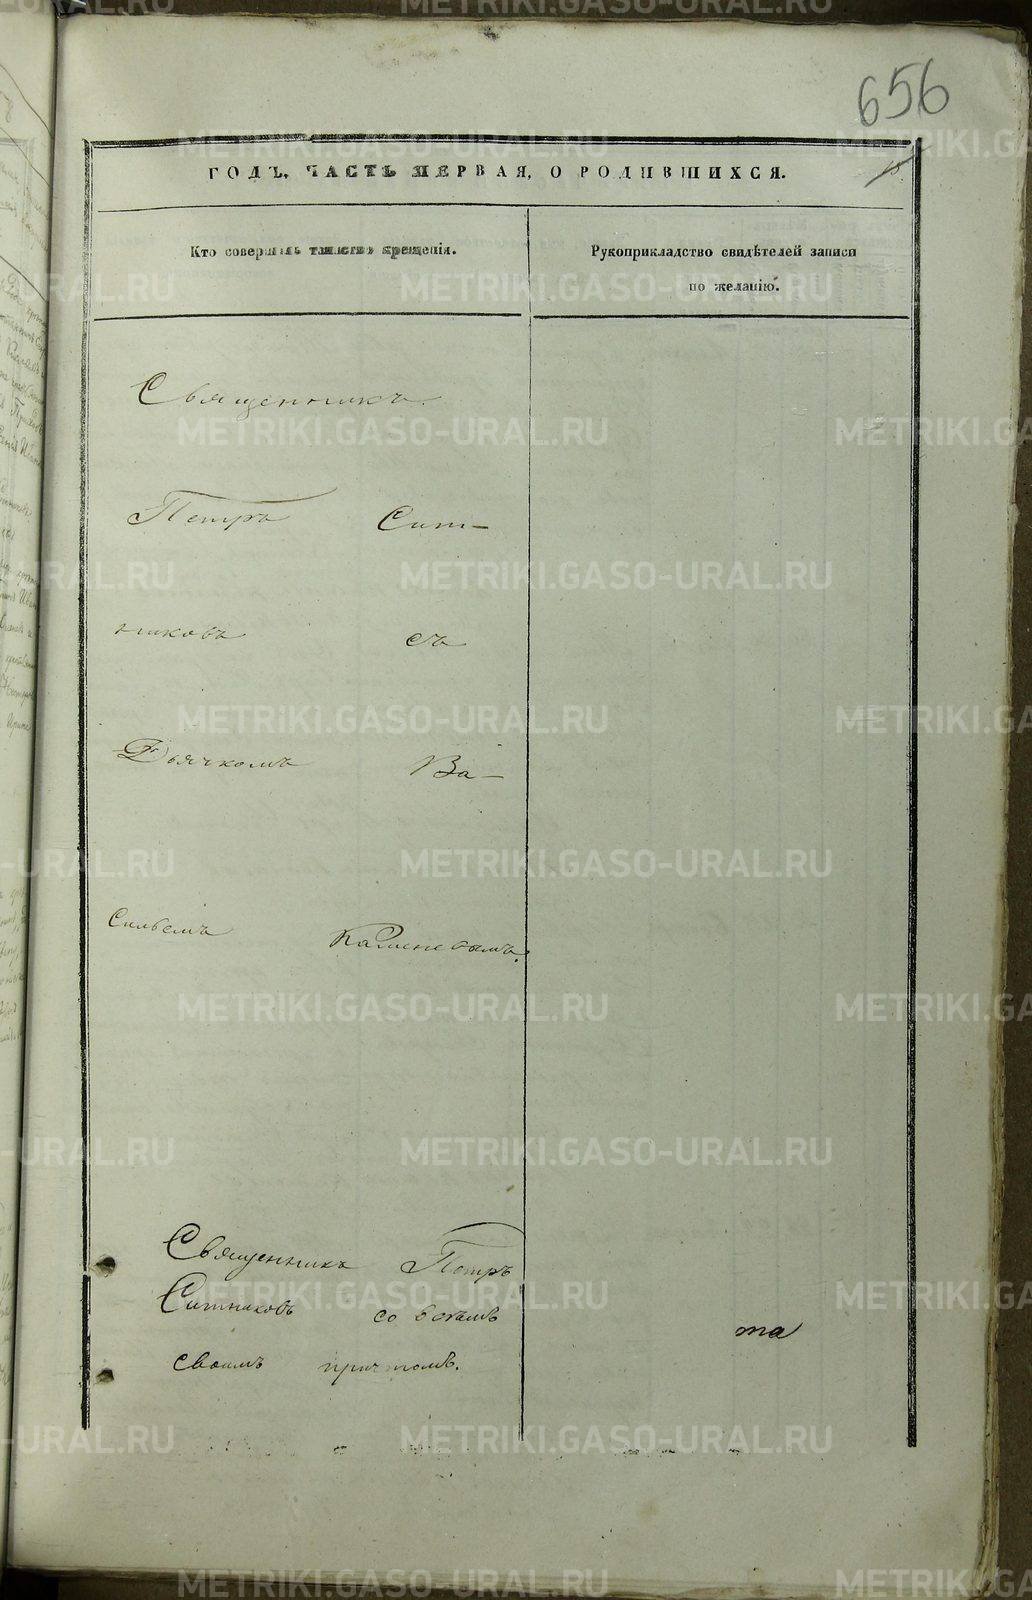 656
ГОДЪ, ЧАСТЬ ПЕРВАЯ, О РОДИВШИХСЯ.
Кто совершалъ таинство крещенія.
Рукоприкладство свидѣтелей записи
по желанію.
Священникъ
Петръ Сит-
никовъ съ
Дьячкомъ Ва-
сильемъ Каменевымъ.
Священникъ Петръ
Ситниковъ со всѣмъ
своимъ причтомъ.
та
METRIKI.GASO-URAL.RU